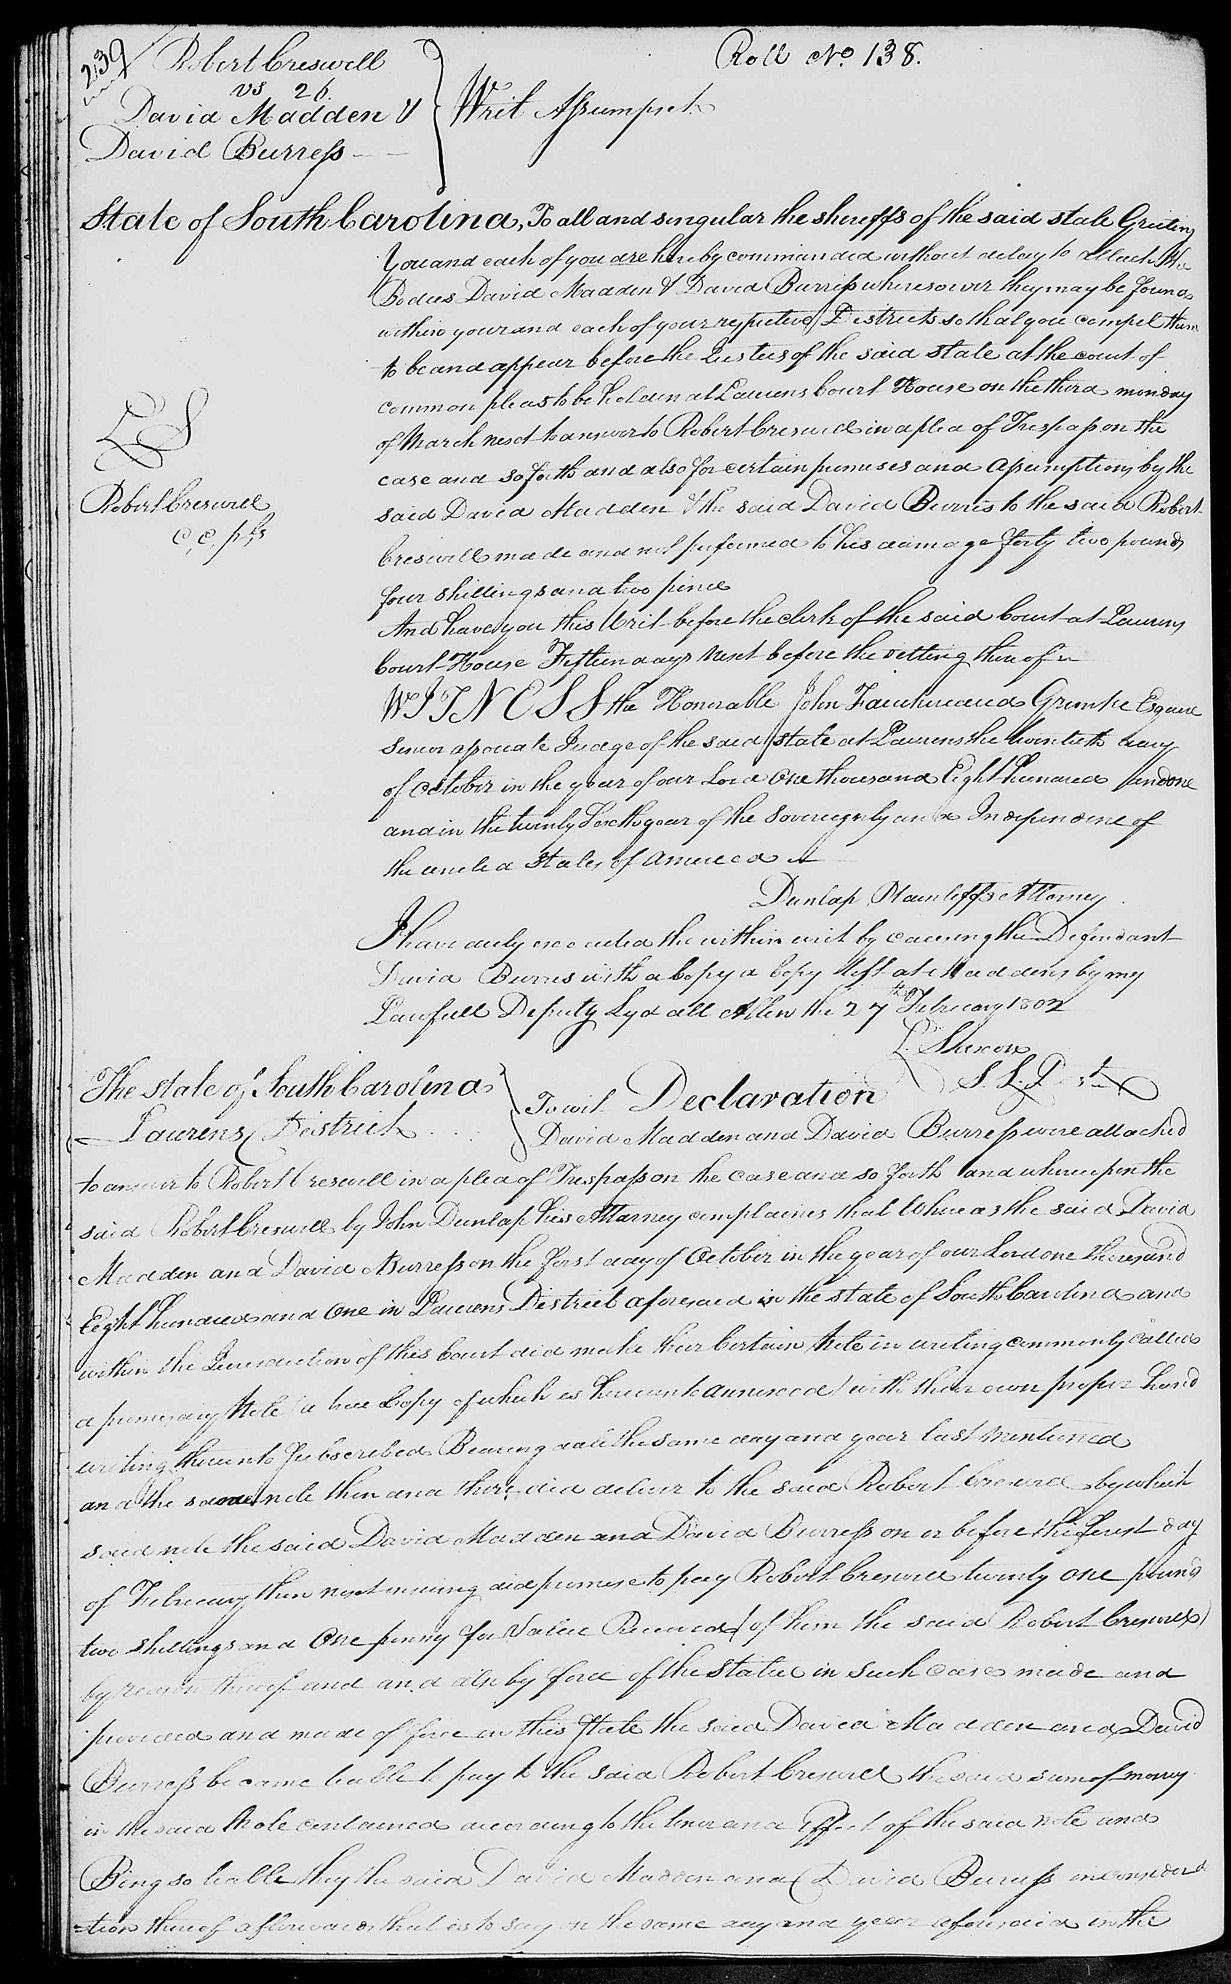 239
Roll No. 138.
Robert Creswell
vs 26.
David Madden &
David Burress
Writ Assumpset.
State of South Carolina, To all and singular the sheriffs of the said state Greeting
You and each of you are hereby commanded without delay to attach the
Bodies David Madden & David Burriss wheresoever they may be found
within your and each of your respective Districts so that you compel them
to be and appear before the Justices of the said state at the court of
common pleas to be holden at Laurens Court House on the third monday
of March next to answer to Robert Creswell in a plea of Trespass on the
case and so forth and also for certain promises and assumptions by the
said David Madden & the said David Burris to the said Robert
Creswell made and not performed to his damage forty two pounds
four shillings and two pence
L S
Robert Creswell
c, c, pls
And have you this Writ before the clerk of the said Court at Laurens
Court House Fifteen days next before the sitting thereof
WITNESS the Honorable John Fauchereaud Grimke Esquire
Senior associate Judge of the said state at Laurens the twentieth day
of October in the year of our Lord One thousand Eight hundred and one
and in the twenty Sixth year of the Sovereignty and Independence of
the united States of America
Dunlap Plaintiffs Attorney.
I have duly executed the within writ by causing the Defendant
David Burres with a Copy a Copy left at Maddens by my
Lawfull Deputy Lydall Allen the 27th February 1802
L. Saxon
S. L. Dist
The state of South Carolina
Laurens District
To wit Declaration
David Madden and David Burress were attached
to answer to Robert Creswell in a plea of Trespass on the case and so forth and whereupon the
said Robert Creswell by John Dunlap his Attorney complaines that Whereas the said David
Madden and David Burress on the first day of October in the year of our Lord one thousand
Eight hundred and One in Laurens District aforesaid in the state of South Carolina and
within the Jurisdiction of this Court did make their Certain Note in writing commonly called
a promisory Note (a true Copy of which is hereunto annexed) with their own proper hand
writing thereunto Subscribed Bearing date the same day and year last mentioned
and the same note then and there did deliver to the said Robert Creswell by which
said note the said David Madden and David Burress on or before the first day
of February then next ensuing did promise to pay Robert Creswell twenty one pounds
two shillings and One penny for Value Received (of him the said Robert Creswell)
by reason thereof and and also by force of the statue in such case made and
provided and made of force in this State the said David Madden and David
Burress became liable to pay to the said Robert Creswell the said sum of money
in the said Note contained according to the tenor and Effect of the said note and
Being so liable they the said David Madden and David Burress in considera
=tion thereof afterwards that is to say on the same day and year aforesaid in the